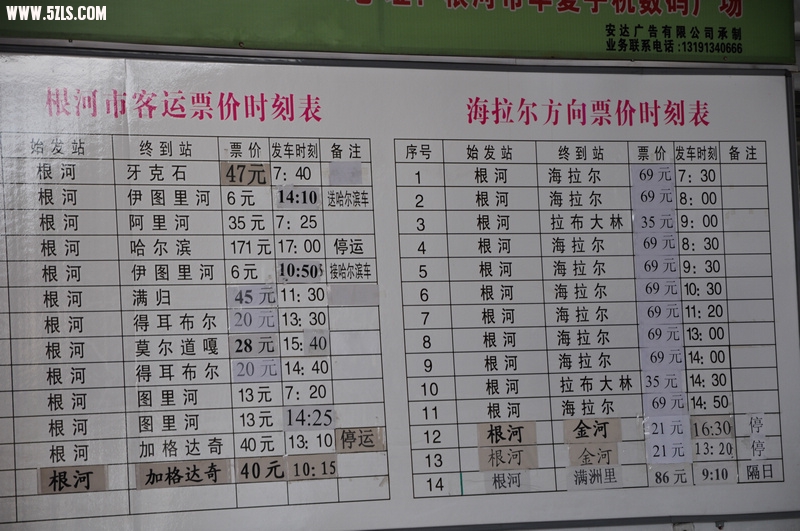 WWW.5ZLS.COM
根河市华夏手机数码广场
安达广告有限公司承制
业务联系电话:13191340666
根河市客运票价时刻表
始发站 终到站 票价 发车时刻 备注
根河 牙克石 47元 7:40
根河 伊图里河 6元 14:10 送哈尔滨车
根河 阿里河 35元 7:25
根河 哈尔滨 171元 17:00 停运
根河 伊图里河 6元 10:50 接哈尔滨车
根河 满归 45元 11:30
根河 得耳布尔 20元 13:30
根河 莫尔道嘎 28元 15:40
根河 得耳布尔 20元 14:40
根河 图里河 13元 7:20
根河 图里河 13元 14:25
根河 加格达奇 40元 13:10 停运
根河 加格达奇 40元 10:15
海拉尔方向票价时刻表
序号 始发站 终到站 票价 发车时刻 备注
1 根河 海拉尔 69元 7:30
2 根河 海拉尔 69元 8:00
3 根河 拉布大林 35元 9:00
4 根河 海拉尔 69元 8:30
5 根河 海拉尔 69元 9:30
6 根河 海拉尔 69元 10:30
7 根河 海拉尔 69元 11:20
8 根河 海拉尔 69元 13:00
9 根河 海拉尔 69元 14:00
10 根河 拉布大林 35元 14:30
11 根河 海拉尔 69元 14:50
12 根河 金河 21元 16:30 停
13 根河 金河 21元 13:20 停
14 根河 满洲里 86元 9:10 隔日